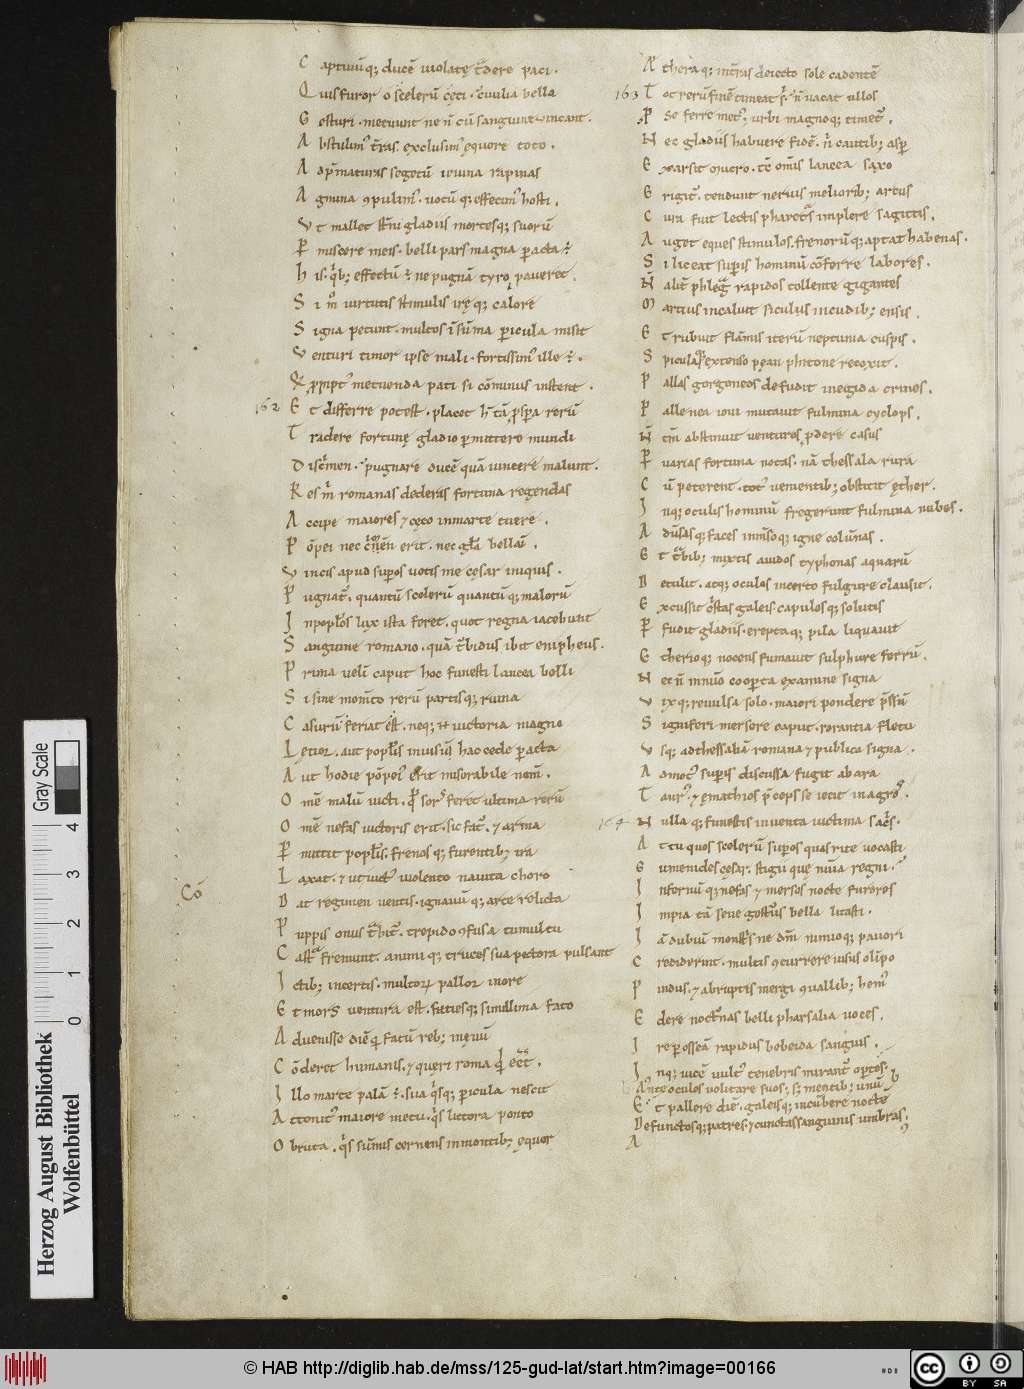 Captiuūq; ducē uiolatę t̄dere paci.
Quis furor o scelerū cęci. ciuilia bella
Gesturi. metuunt ne ñ cū sanguine uincant.
Abstulim᷒ tr̄as. exclusim᷒ ęquore toto.
Adp̄maturas segetū ieiuna rapinas
Agmina ꝯpulim᷒. uotū q; effecim᷒ hosti,
Vt mallet st̄ni gladiis mortesq; suorū
Ꝑmiscere meis. belli pars magna ꝑacta ē
His. q̄b; effectū ē ne pugnā tyro pauerec.
Si m̊ uirtutis stimulis iręq; calore
Signa petunt. multos ī sūma ꝑicula misit
Venturi timor ipse mali. fortissim᷒ ille ē.
Qui p̄mpt᷒ metuenda pati si cōminus instent.
162 Et differre potest. placet h̄ tā ꝓsꝑa rerū
Tradere fortunę gladio ꝑmittere mundi
Discm̄en. pugnare ducē quā uincere malunt.
Res m̄ romanas dederas fortuna regendas
Accipe maiores ⁊ cęco inmarte tuere.
Pōpei nec crimen erit. nec gl̄a bellū.
Vincis apud suꝑos uotis me cęsar iniquis.
Pugnat᷒. quantū scelerū quantū q; malorū
Inpopl̄os lux ista feret. quot regna iacebunt
Sanguine romano. quā t̄bidus ibit enipheus.
Prima uelī caput hoc funesti lancea belli
Si sine mom̄to rerū partisq; ruina
Casurū feriat ēst. neq; eñ uictoria magno
Lętior. aut popl̄is inuisū hac cęde ꝑacta
Aut hodie pōpei᷒ erit miserabile nom̄.
Omē malū uicti. q̄ sors feret ultima rerū
Omē nefas uictoris erit. sic fat᷒. ⁊ arma
Ꝑmittit popl̄is. frenos q; furentib; ira
Laxat. ⁊ ut uict᷒ uiolento nauita choro
Dat regimen uentis. ignauū q; arte relicta
Puppis onus t̄hit᷒. trepido ꝯfusa tumultu
Cō Castra fremunt. animi q; truces sua pectora pulsant
Ictib; incertis. multorꝝ pallor inore
Et mors uentura est. faciesq; simillima fato
Aduenisse diē q̄ fatū reb; inęuū
Cōderet humanis. ⁊ quęri roma qd̄ eēt.
Illo marte palā ē. sua q̄sq; ꝑicula nescit
Attonit᷒ maiore metu. q̄s littora ponto
Obruta. q̄s sūmis cernens inmontib; ęquor
Aetheraq; interras deiecto sole cadentē
163 Tot rerū finē timeat s̄. ñ uacat ullos
P̱ se ferre met᷒; urbi magnoq; timet᷒.
Nec gladiis habuere fidē. ñ cautib; asꝑ
Exarsit mucro. tc̄ om̄is lancea saxo
Erigit᷒. tendunt neruis meliorib; arcus
Cura fuit lectis pharetras implere sagittis.
Auget eques stimulos. frenorū q; aptat habenas.
Si liceat suꝑis hominū cōferre labores.
Ñ alit̄ phlegra rapidos tollente gigantes
Martius incaluit siculus incudib; ensis.
Et rubuit flāmis iterū neptunia cuspis.
Spiculaq; extenso pęan phitone recoxit.
Pallas gorgoneos defudit inegida crines.
Pallenea ioui mutauit fulmina cyclops.
Ñ tm̄ abstinuit uenturos ꝓdere casus
Ꝑ uarias fortuna notas. nā thessala rura
Cū peterent. tot᷒ uenientib; obstitit ęther.
Inq; oculis hominū fregerunt fulmina nubes.
Aduersasq; faces inmsoq; igne colūnas.
Et t̄bib; mixtis auidos typhonas aquarū
Detulit. atq; oculos incerto fulgure clausit.
Excussit cristas galeis capulosq; solutis
Ꝑfudit gladiis. ereptaq; pila liquauit
Etherioq; nocens fumauit sulphure ferrū.
Nec ñ innūo cooꝑta examine signa
Vixq; reuulsa solo. maiori pondere p̄ssū
Signiferi mersere caput. rorantia fletu
Vsq; adthessaliā romana ⁊ publica signa.
Amot᷒ suꝑis discussa fugit abara
Taur᷒. ⁊ ęmathios p̄ceps se iecit inagros.
164 Nulla q; funestis inuenta uictima sac̄s.
At tu quos scelerū suꝑos quas rite uocasti
Eumenides cęsar. stigii quę nūia regni.
Infernū q; nefas ⁊ mersos nocte furores
Impia tā seue gesturus bella litasti.
Iā dubiū monstris ne dm̄ nimioq; pauori
Crediderint. multis ꝯcurrere uisus olīpo
Pindus. ⁊ abruptis mergi ꝯuallib; hem᷒
Edere noct̄nas belli pharsalia uoces.
Ire ꝑ osseā rapidus bebeida sanguis.
Inq; uicē uult᷒ tenebris mirant᷒ opertos.
Ante oculos uolitare suos. s; mentib; unū
Et pallere diē. galeisq; incūbere noctē
Defunctosq; patres. ⁊ cunctas sanguinis umbras.
A
Gray Scale
4 3 2 1 0
Herzog August Bibliothek
Wolfenbüttel
© HAB http://diglib.hab.de/mss/125-gud-lat/start.htm?image=00166
cc BY SA